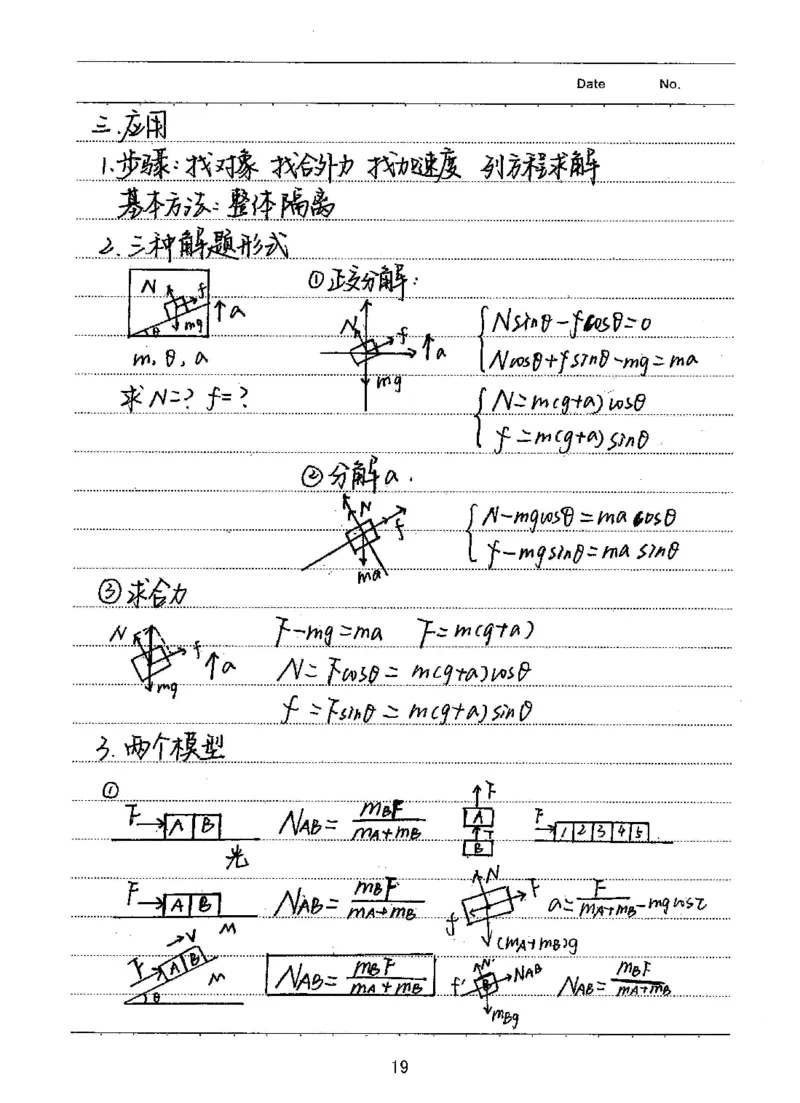 Date No.
三.应用
1.步骤:找对象 找合外力 找加速度 列方程求解
基本方法:整体隔离
2.三种解题形式
N f mg θ ↑a
m, θ, a
求 N=? f=?
①正交分解:
N f mg ↑a
Nsinθ-fcosθ=0
Ncosθ+fsinθ-mg=ma
N=m(g+a)cosθ
f=m(g+a)sinθ
②分解a.
N f ma
N-mgcosθ=ma cosθ
f-mgsinθ=ma sinθ
③求合力
N f mg ↑a
F-mg=ma F=m(g+a)
N=Fcosθ=m(g+a)cosθ
f=Fsinθ=m(g+a)sinθ
3.两个模型
①
F A B 光 NAB=mBF/(mA+mB) F A T B F 1 2 3 4 5
F A B M NAB=mBF/(mA+mB) N F f (mA+mB)g
F A B V M θ NAB=mBF/(mA+mB) N' NAB f' B mBg NAB=mBF/(mA+mB)
19